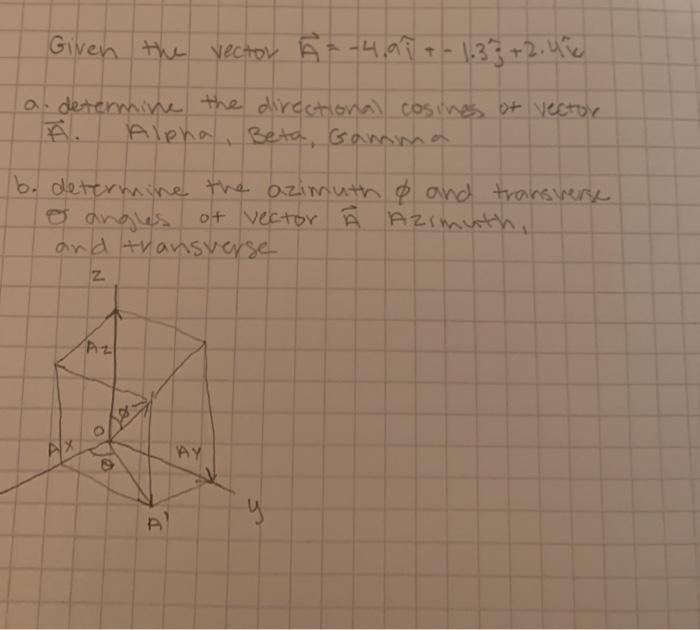 Given the vector A⃗ = -4.9î + -1.3ĵ + 2.4k̂
a. determine the directional cosines of vector
A⃗. Alpha, Beta, Gamma
b. determine the azimuth ϕ and transverse
θ angles of vector A⃗ Azimuth,
and transverse
z
Az
ϕ
O
Ax
Ay
θ
y
A'